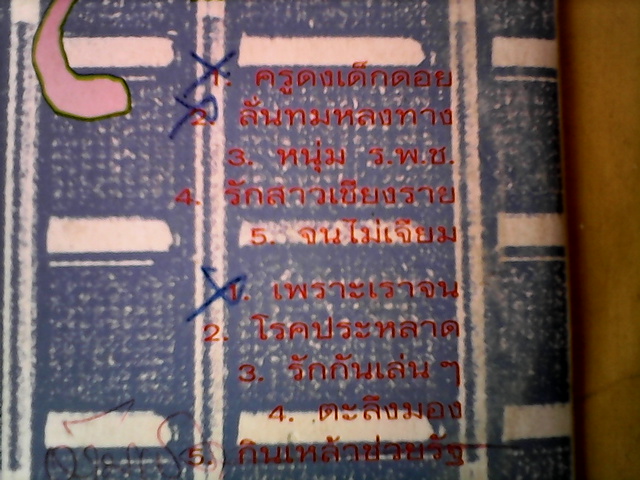 1. ครูดงเด็กดอย
2. ลั่นทมหลงทาง
3. หนุ่ม ร.พ.ช.
4. รักสาวเชียงราย
5. จนไม่เจียม
1. เพราะเราจน
2. โรคประหลาด
3. รักกันเล่น ๆ
4. ตะลึงมอง
5. กินเหล้าช่วยรัฐ